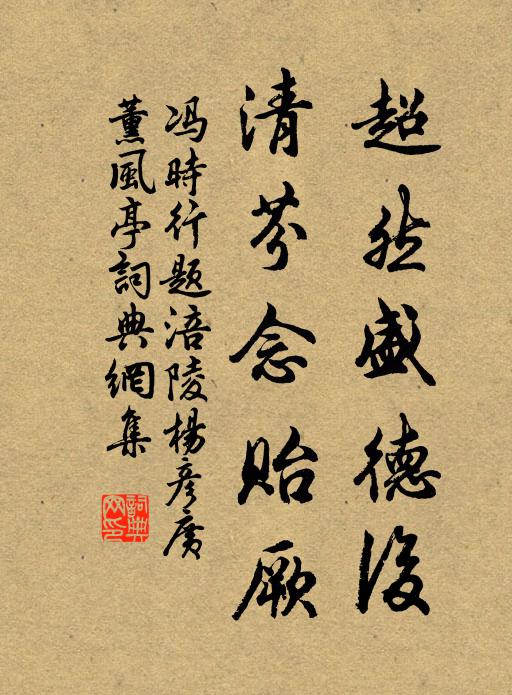 超然盛德後
清芬念貽厥
冯時行题涪陵楊彦廣
薰風亭詞典網集
詞典
网印